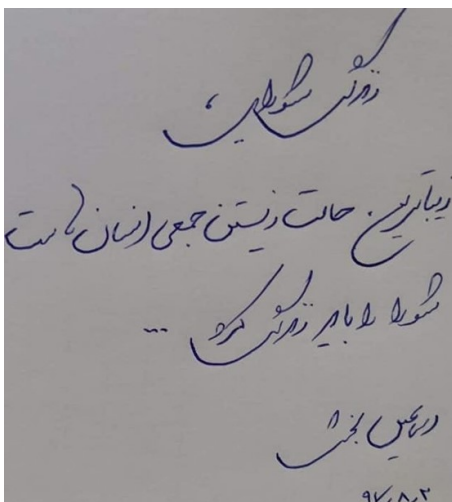 زندگی شورایی،
زیباترین حالت زیستن جمعی انسان‌هاست
شورا را باید زندگی کرد ...
اسماعیل بخشی
۹۷٫۸٫۲